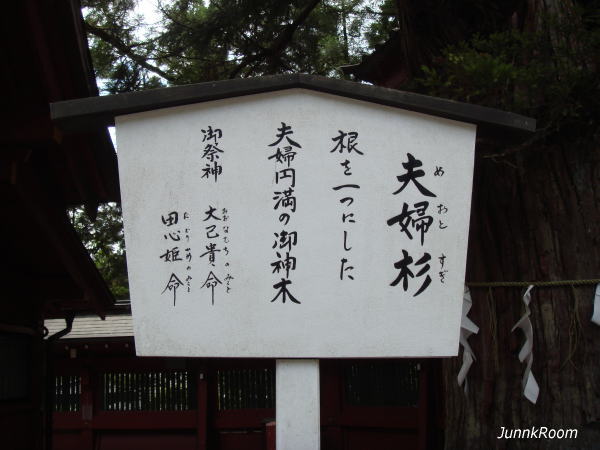 夫婦杉
めおとすぎ
根を一つにした
夫婦円満の御神木
御祭神 大己貴命
おおなむちのみこと
田心姫命
たごりひめのみこと
JunnkRoom